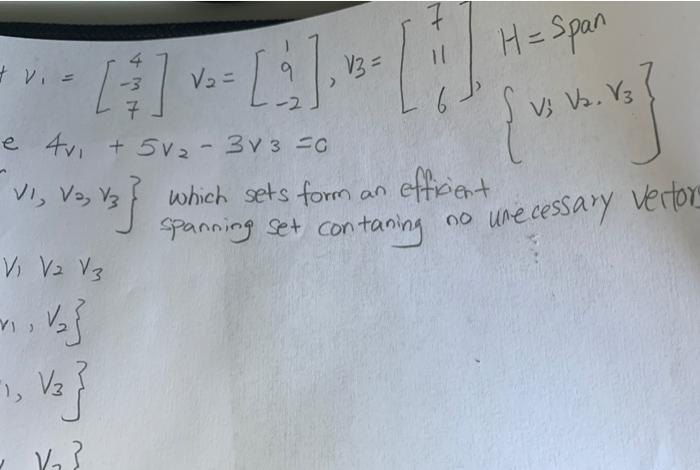 V1 = [4 -3 7] V2 = [1 9 -2], V3 = [7 11 6], H = Span {V1 V2. V3}
e 4V1 + 5V2 - 3V3 = 0
V1, V2, V3} which sets form an efficient
spanning set contaning no unecessary vectors
V1 V2 V3
V1, V2}
1, V3}